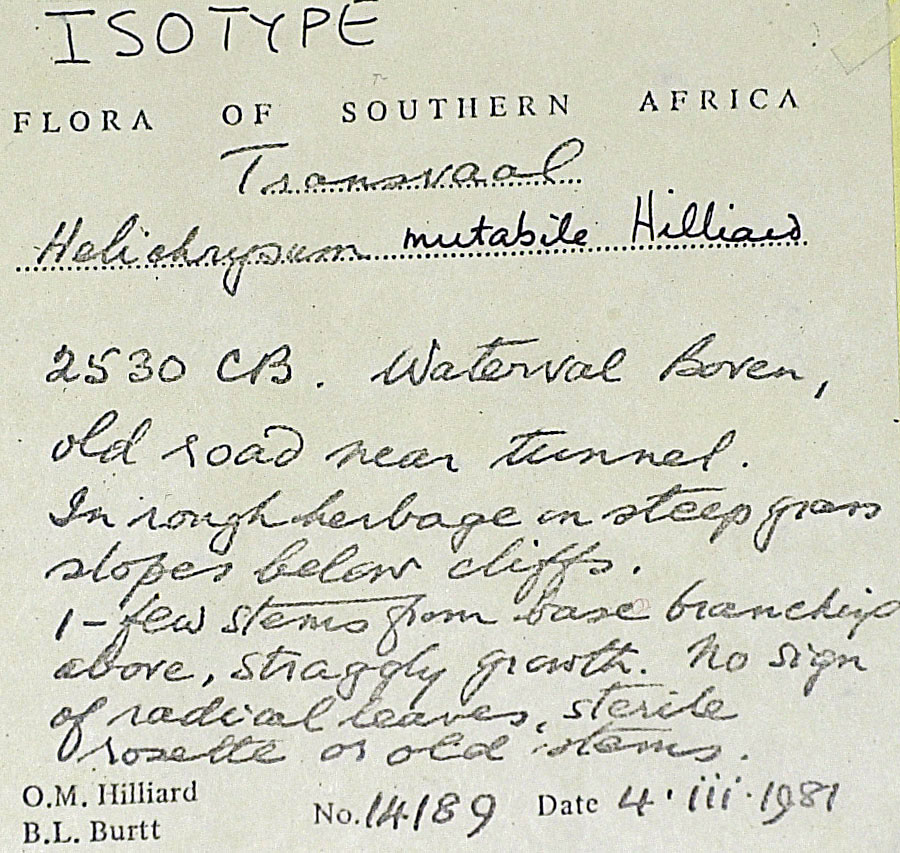 ISOTYPE
FLORA OF SOUTHERN AFRICA
Transvaal
Helichrysum mutabile Hilliard
2530 CB. Waterval Boven,
old road near tunnel.
In rough herbage on steep grass
slopes below cliffs.
1-few stems from base branching
above, straggly growth. No sign
of radical leaves, sterile
rosette or old stems.
O.M. Hilliard
B.L. Burtt
No. 14189 Date 4·iii·1981